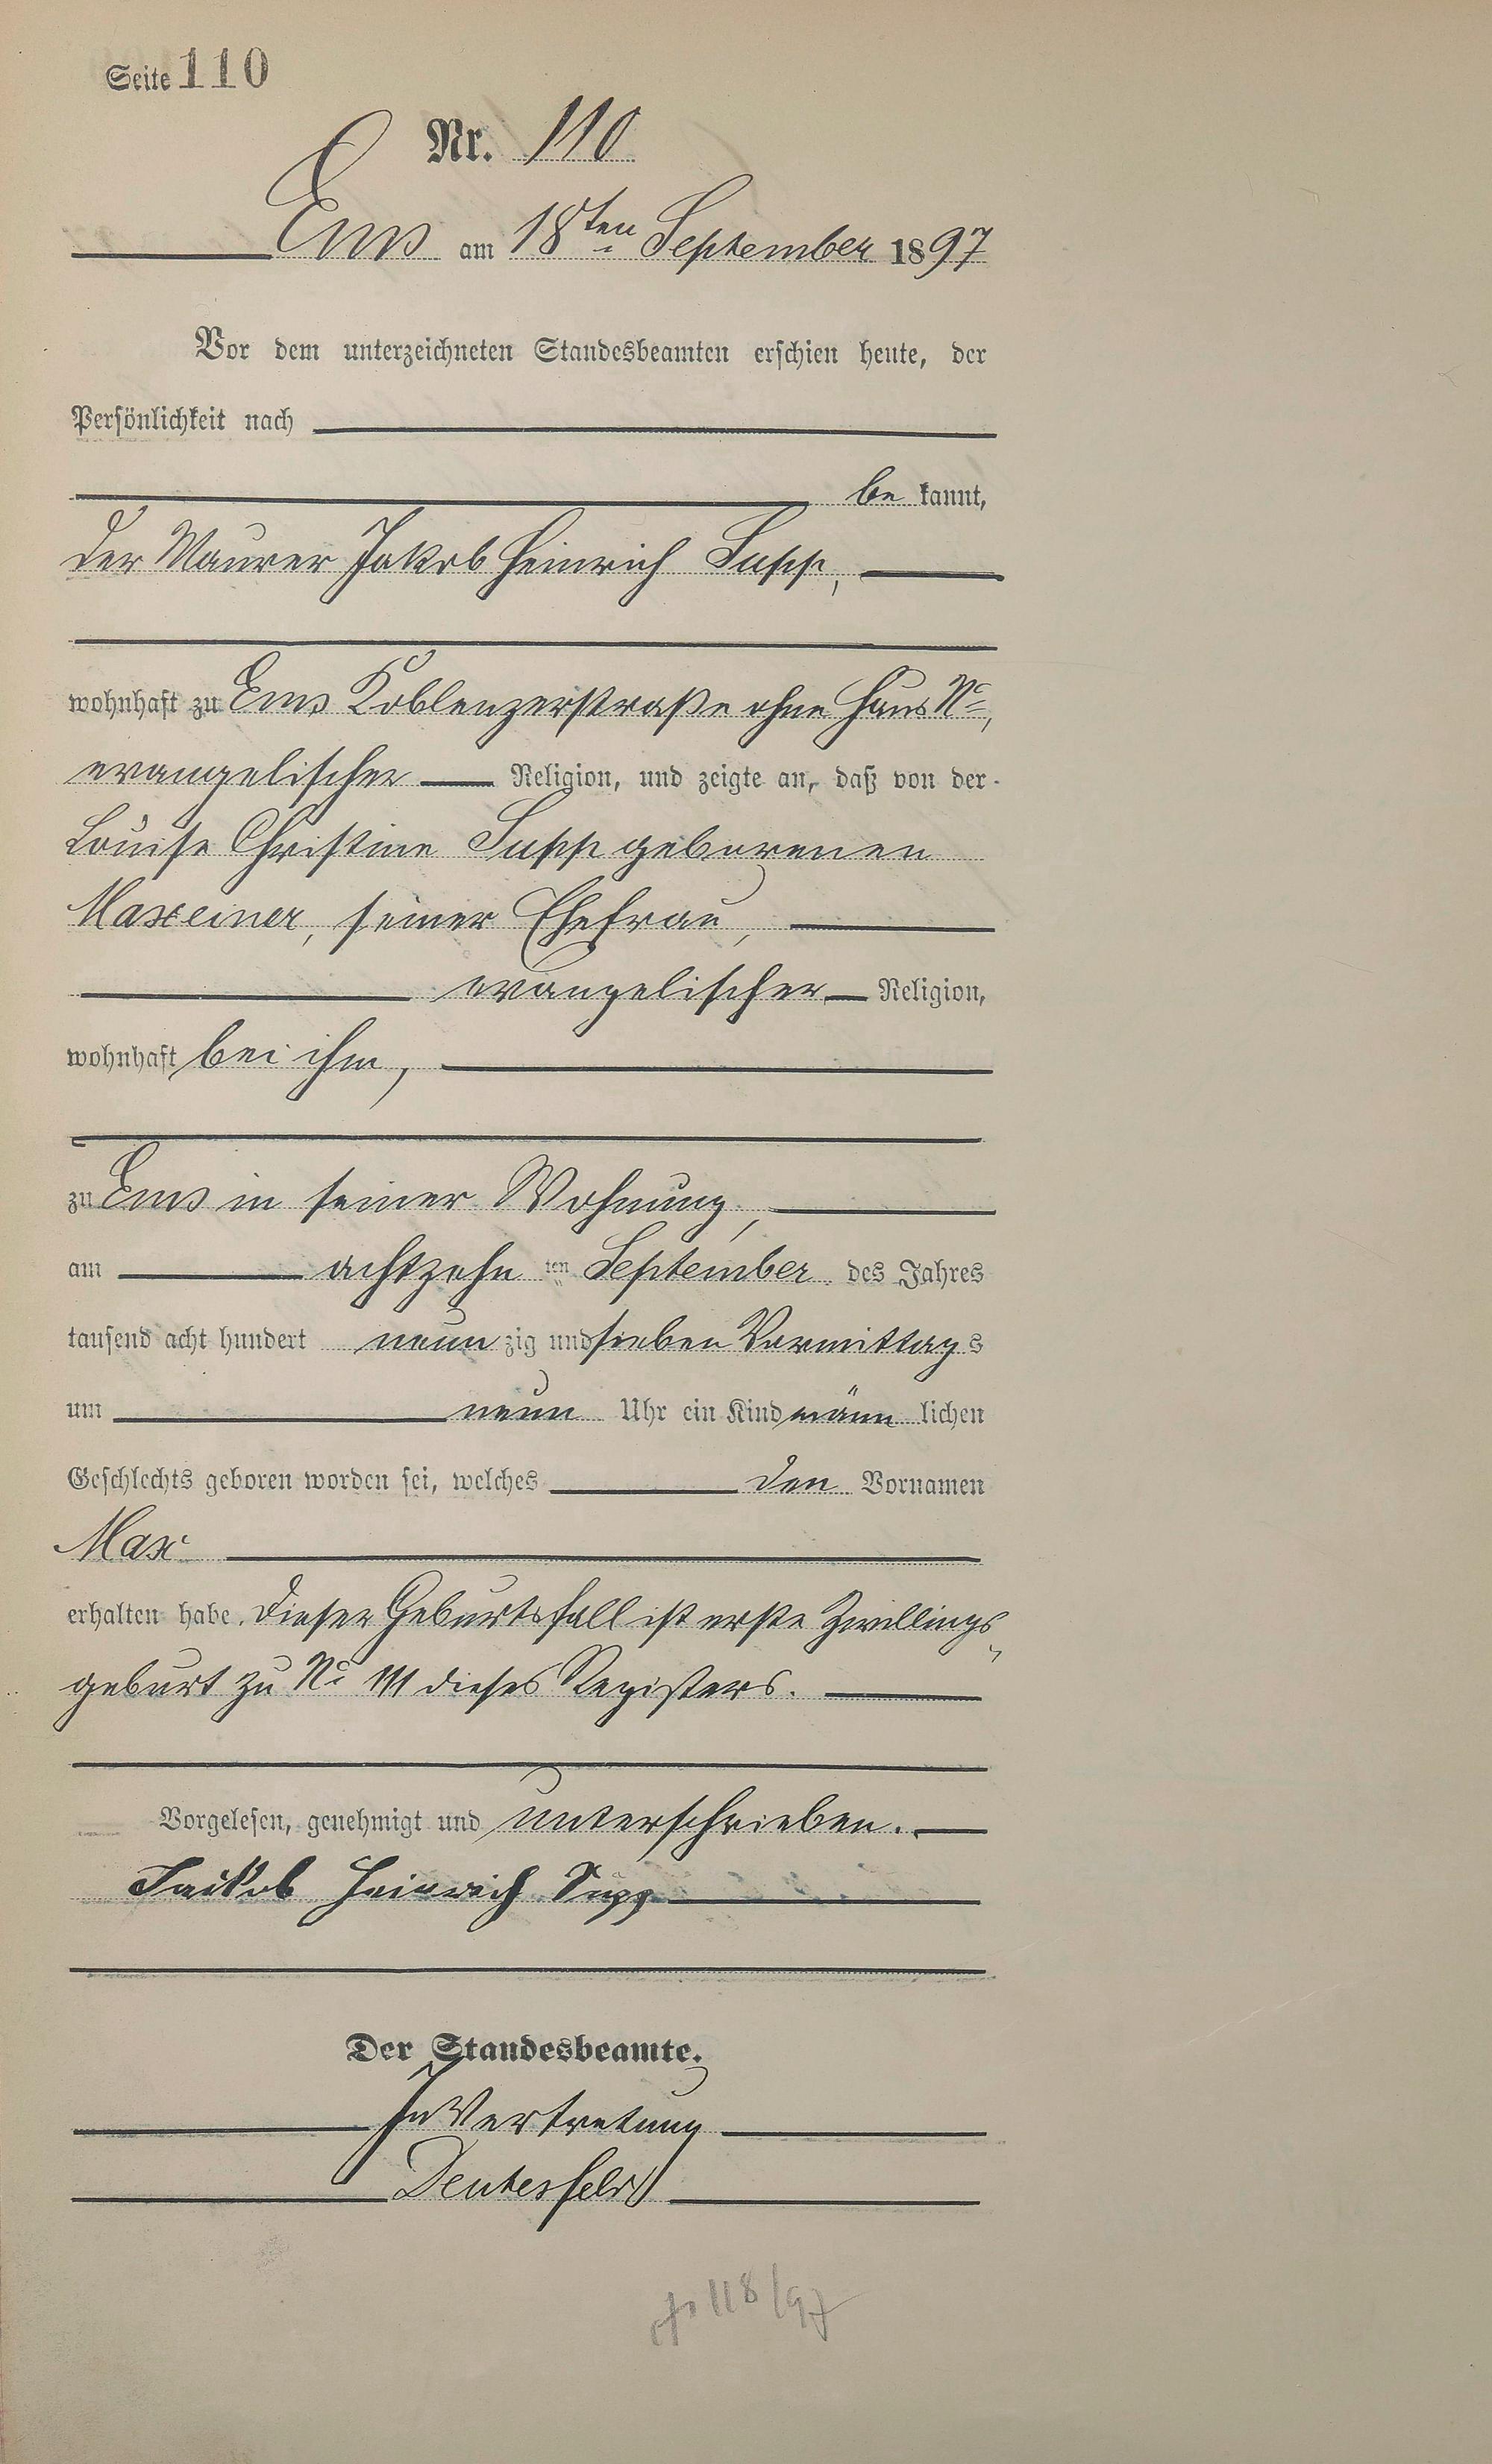 Seite 110
Nr. 110
Ems am 18ten September 1897
Vor dem unterzeichneten Standesbeamten erschien heute, der
Persönlichkeit nach
be kannt,
der Maurer Jakob Heinrich Supp,
wohnhaft zu Ems Koblenzerstraße ohne Haus No,
evangelischer Religion, und zeigte an, daß von der
Louise Christine Supp geborenen
Maxeiner, seiner Ehefrau,
evangelischer Religion,
wohnhaft bei ihm,
zu Ems in seiner Wohnung,
am achtzehn ten September des Jahres
tausend acht hundert neun zig und sieben Vormittag s
um neun Uhr ein Kind männ lichen
Geschlechts geboren worden sei, welches den Vornamen
Max
erhalten habe. Dieser Geburtsfall ist erste Zwillings-
geburt zu No 111 dieses Registers.
Vorgelesen, genehmigt und unterschrieben.
Jakob Heinrich Supp
Der Standesbeamte.
In Vertretung
Deutesfeld
118/97